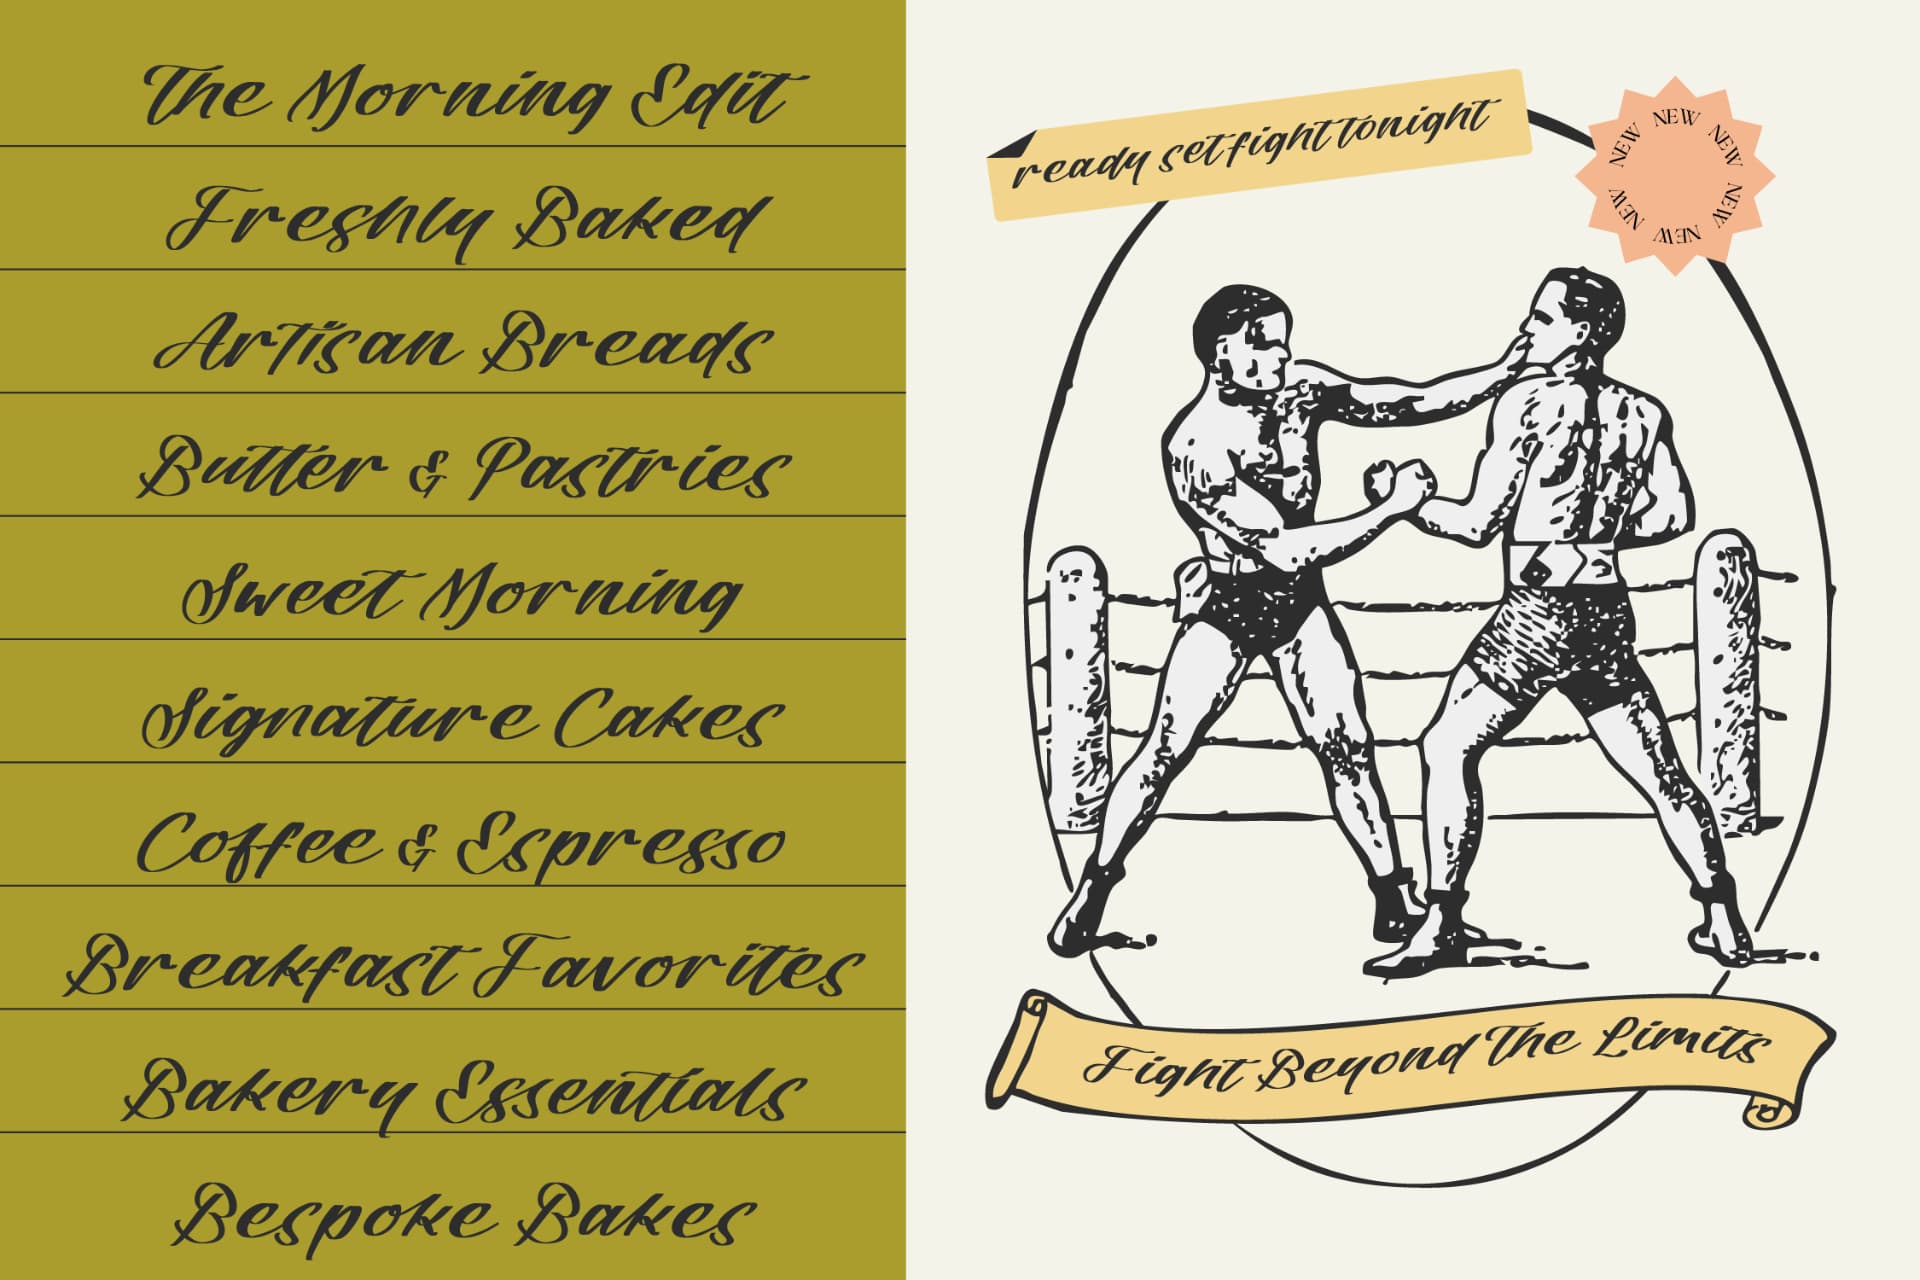 The Morning Edit
Freshly Baked
Artisan Breads
Butter & Pastries
Sweet Morning
Signature Cakes
Coffee & Espresso
Breakfast Favorites
Bakery Essentials
Bespoke Bakes
ready set fight tonight
NEW NEW NEW NEW NEW NEW NEW
Fight Beyond The Limits